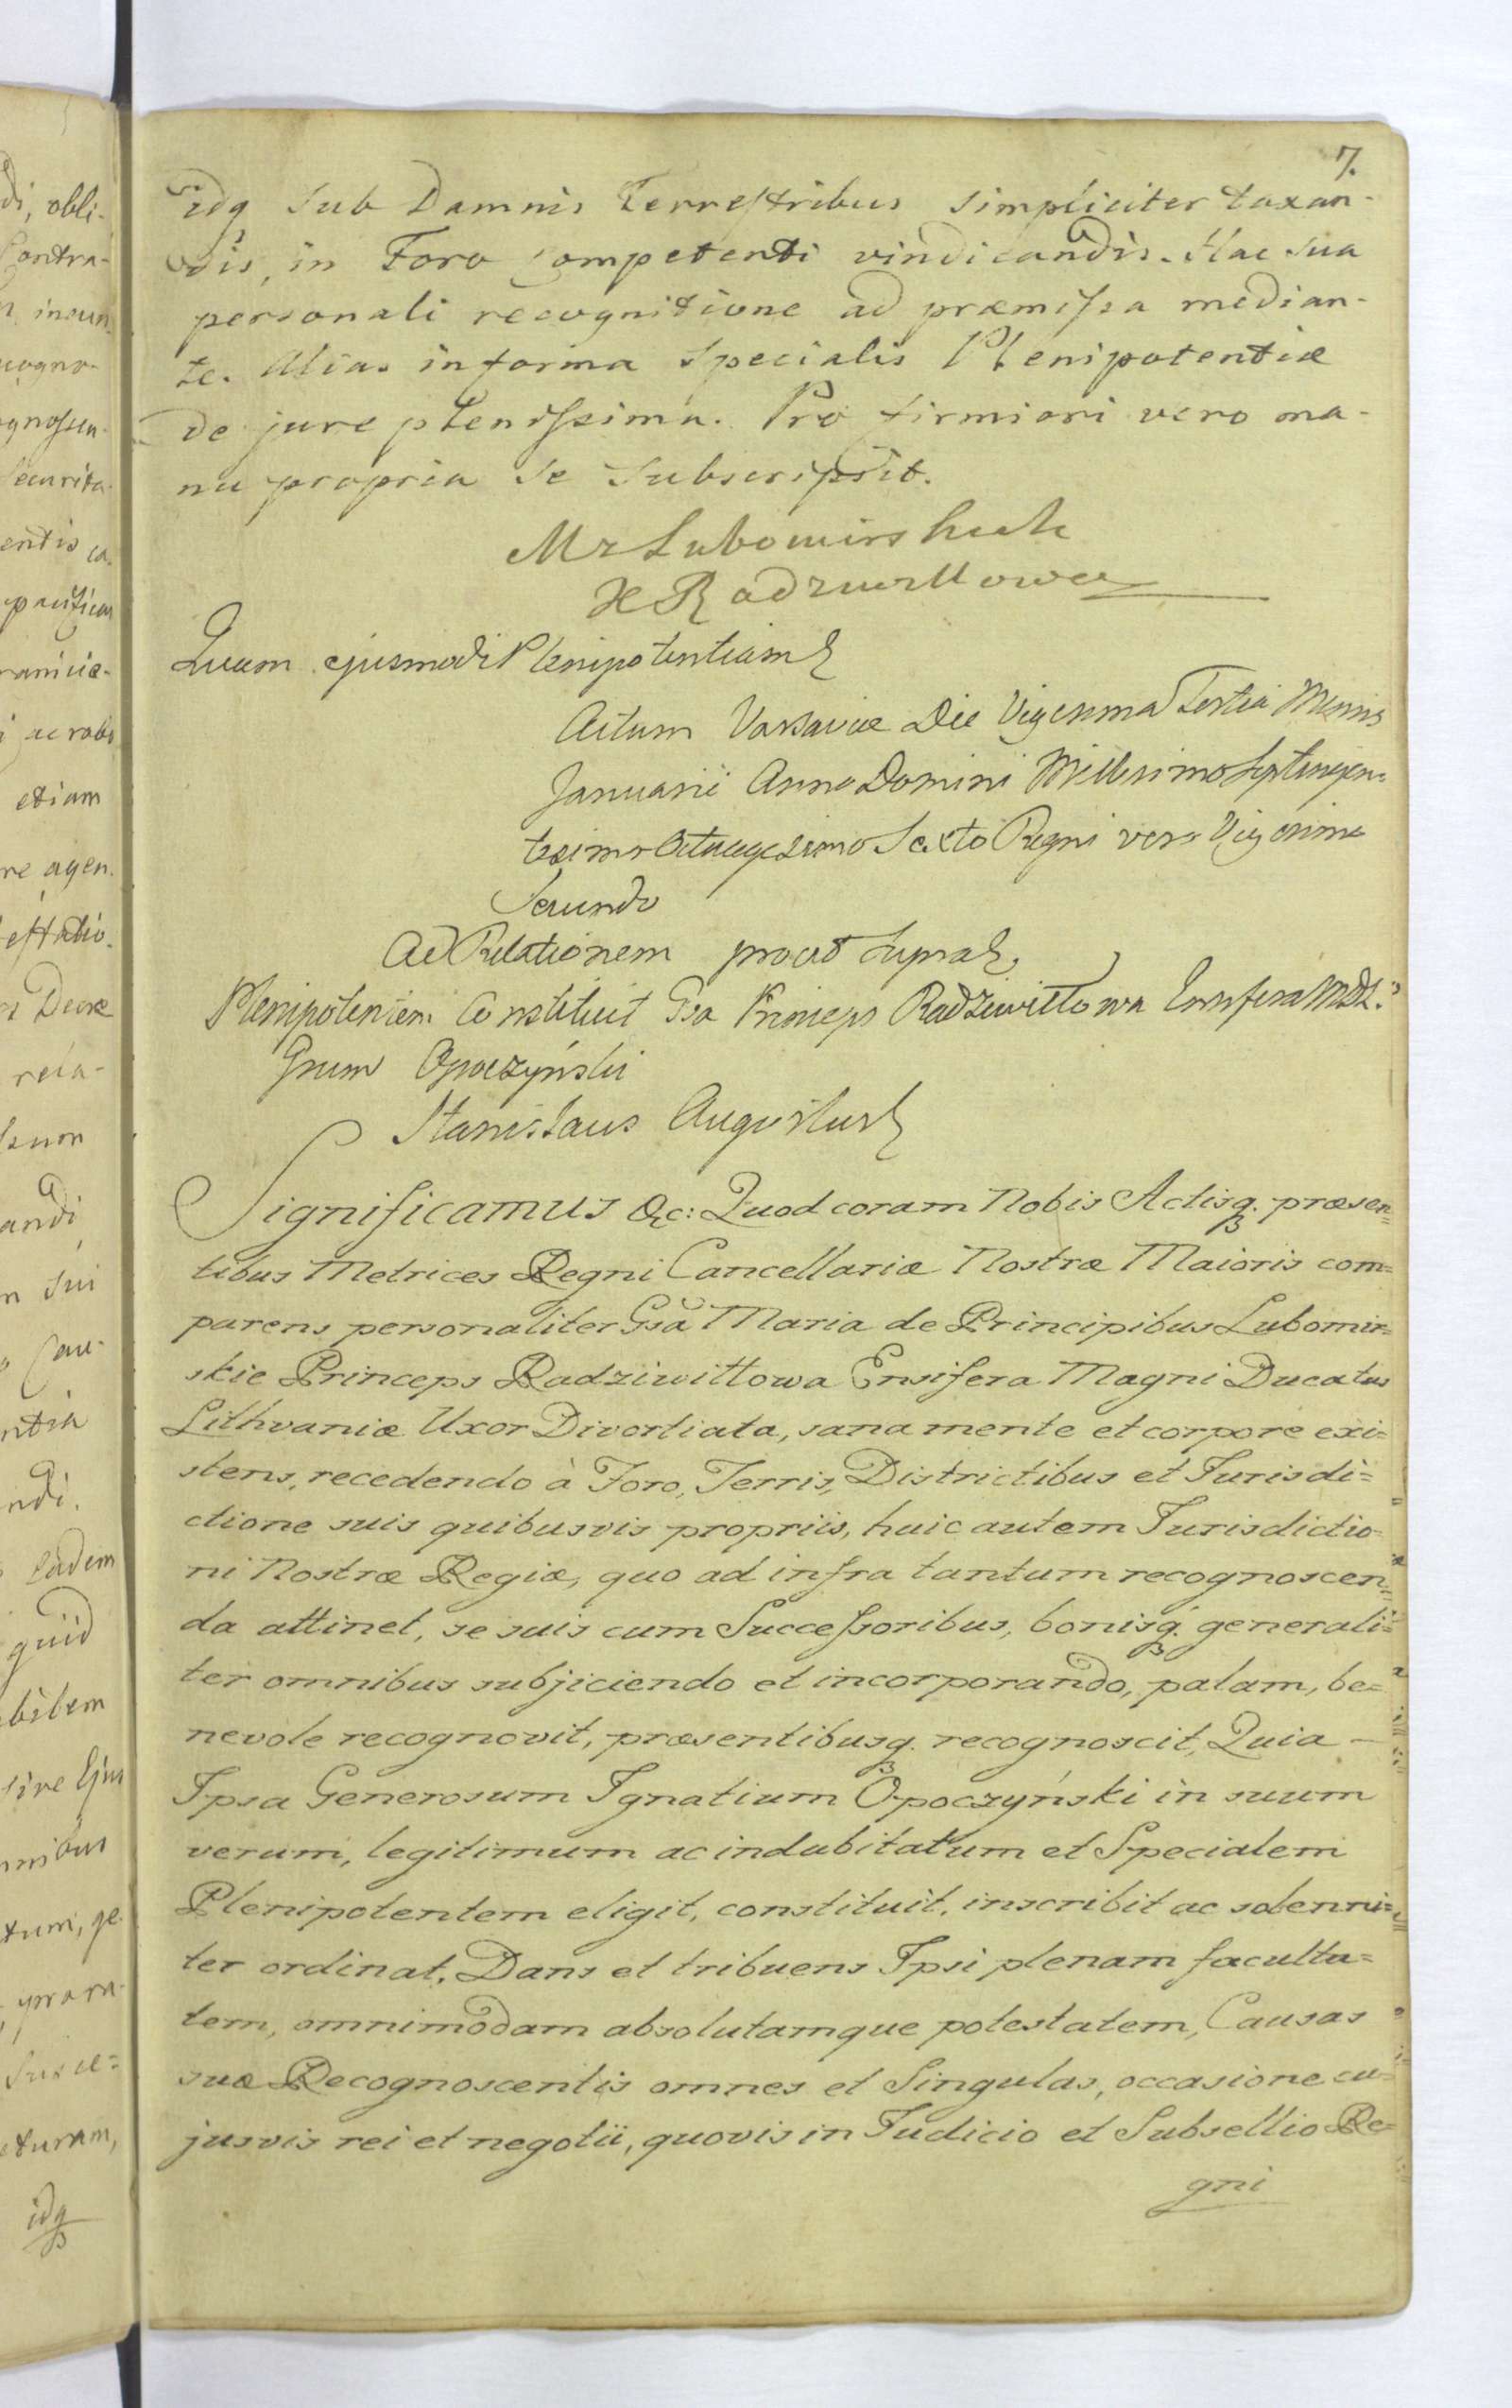 7.
idq sub Damnis Terrestribus simpliciter taxan-
dis, in Foro Competenti vindicandis. Hac sua
personali recognitione ad præmissa median-
te. Alias informa specialis Plenipotentiæ
de jure plenissima. Pro firmiori vero ma-
nu propria se subscripsit.
Mr Lubomirska
X Radziwiłłowa
Quam ejusmodi Plenipotentiam
Actum Varsaviæ Die Vigesima Tertia Mensis
Januarii Anno Domini Millesimo Septingen=
tesimo Octuagesimo Sexto Regni vero Vigesimo
Secundo
Ad Relationem prout supra
Plenipotentem Constituit Gsa Princeps Radziwiłłowa Ensifera MDL.
Gsum Opoczyński
Stanislaus Augustus
Significamus &c: Quod coram Nobis Actisq. præsen=
tibus Metrices Regni Cancellariæ Nostræ Maioris com=
parens personaliter Gsa Maria de Principibus Lubomir=
skie Princeps Radziwiłłowa Ensifera Magni Ducatus
Lithvaniæ Uxor Divortiata, sana mente et corpore exi=
stens, recedendo à Foro, Terris, Districtibus et Jurisdi=
ctione suis quibusvis propriis, huic autem Jurisdictio=
ni Nostræ Regiæ, quo ad infra tantum recognoscen=
da attinet, se suis cum Successoribus, bonisq. generali=
ter omnibus subjiciendo et incorporando, palam, be=
nevole recognovit, præsentibusq. recognoscit, Quia –
Ipsa Generosum Ignatium Opoczyński in suum
verum, legitimum ac indubitatum et Specialem
Plenipotentem eligit, constituit, inscribit ac solenni=
ter ordinat, Dans et tribuens Ipsi plenam faculta=
tem, omnimodam absolutamque potestatem, Causas
suæ Recognoscentis omnes et Singulas, occasione cu=
jusvis rei et negotii, quovis in Judicio et Subsellio Re=
gni